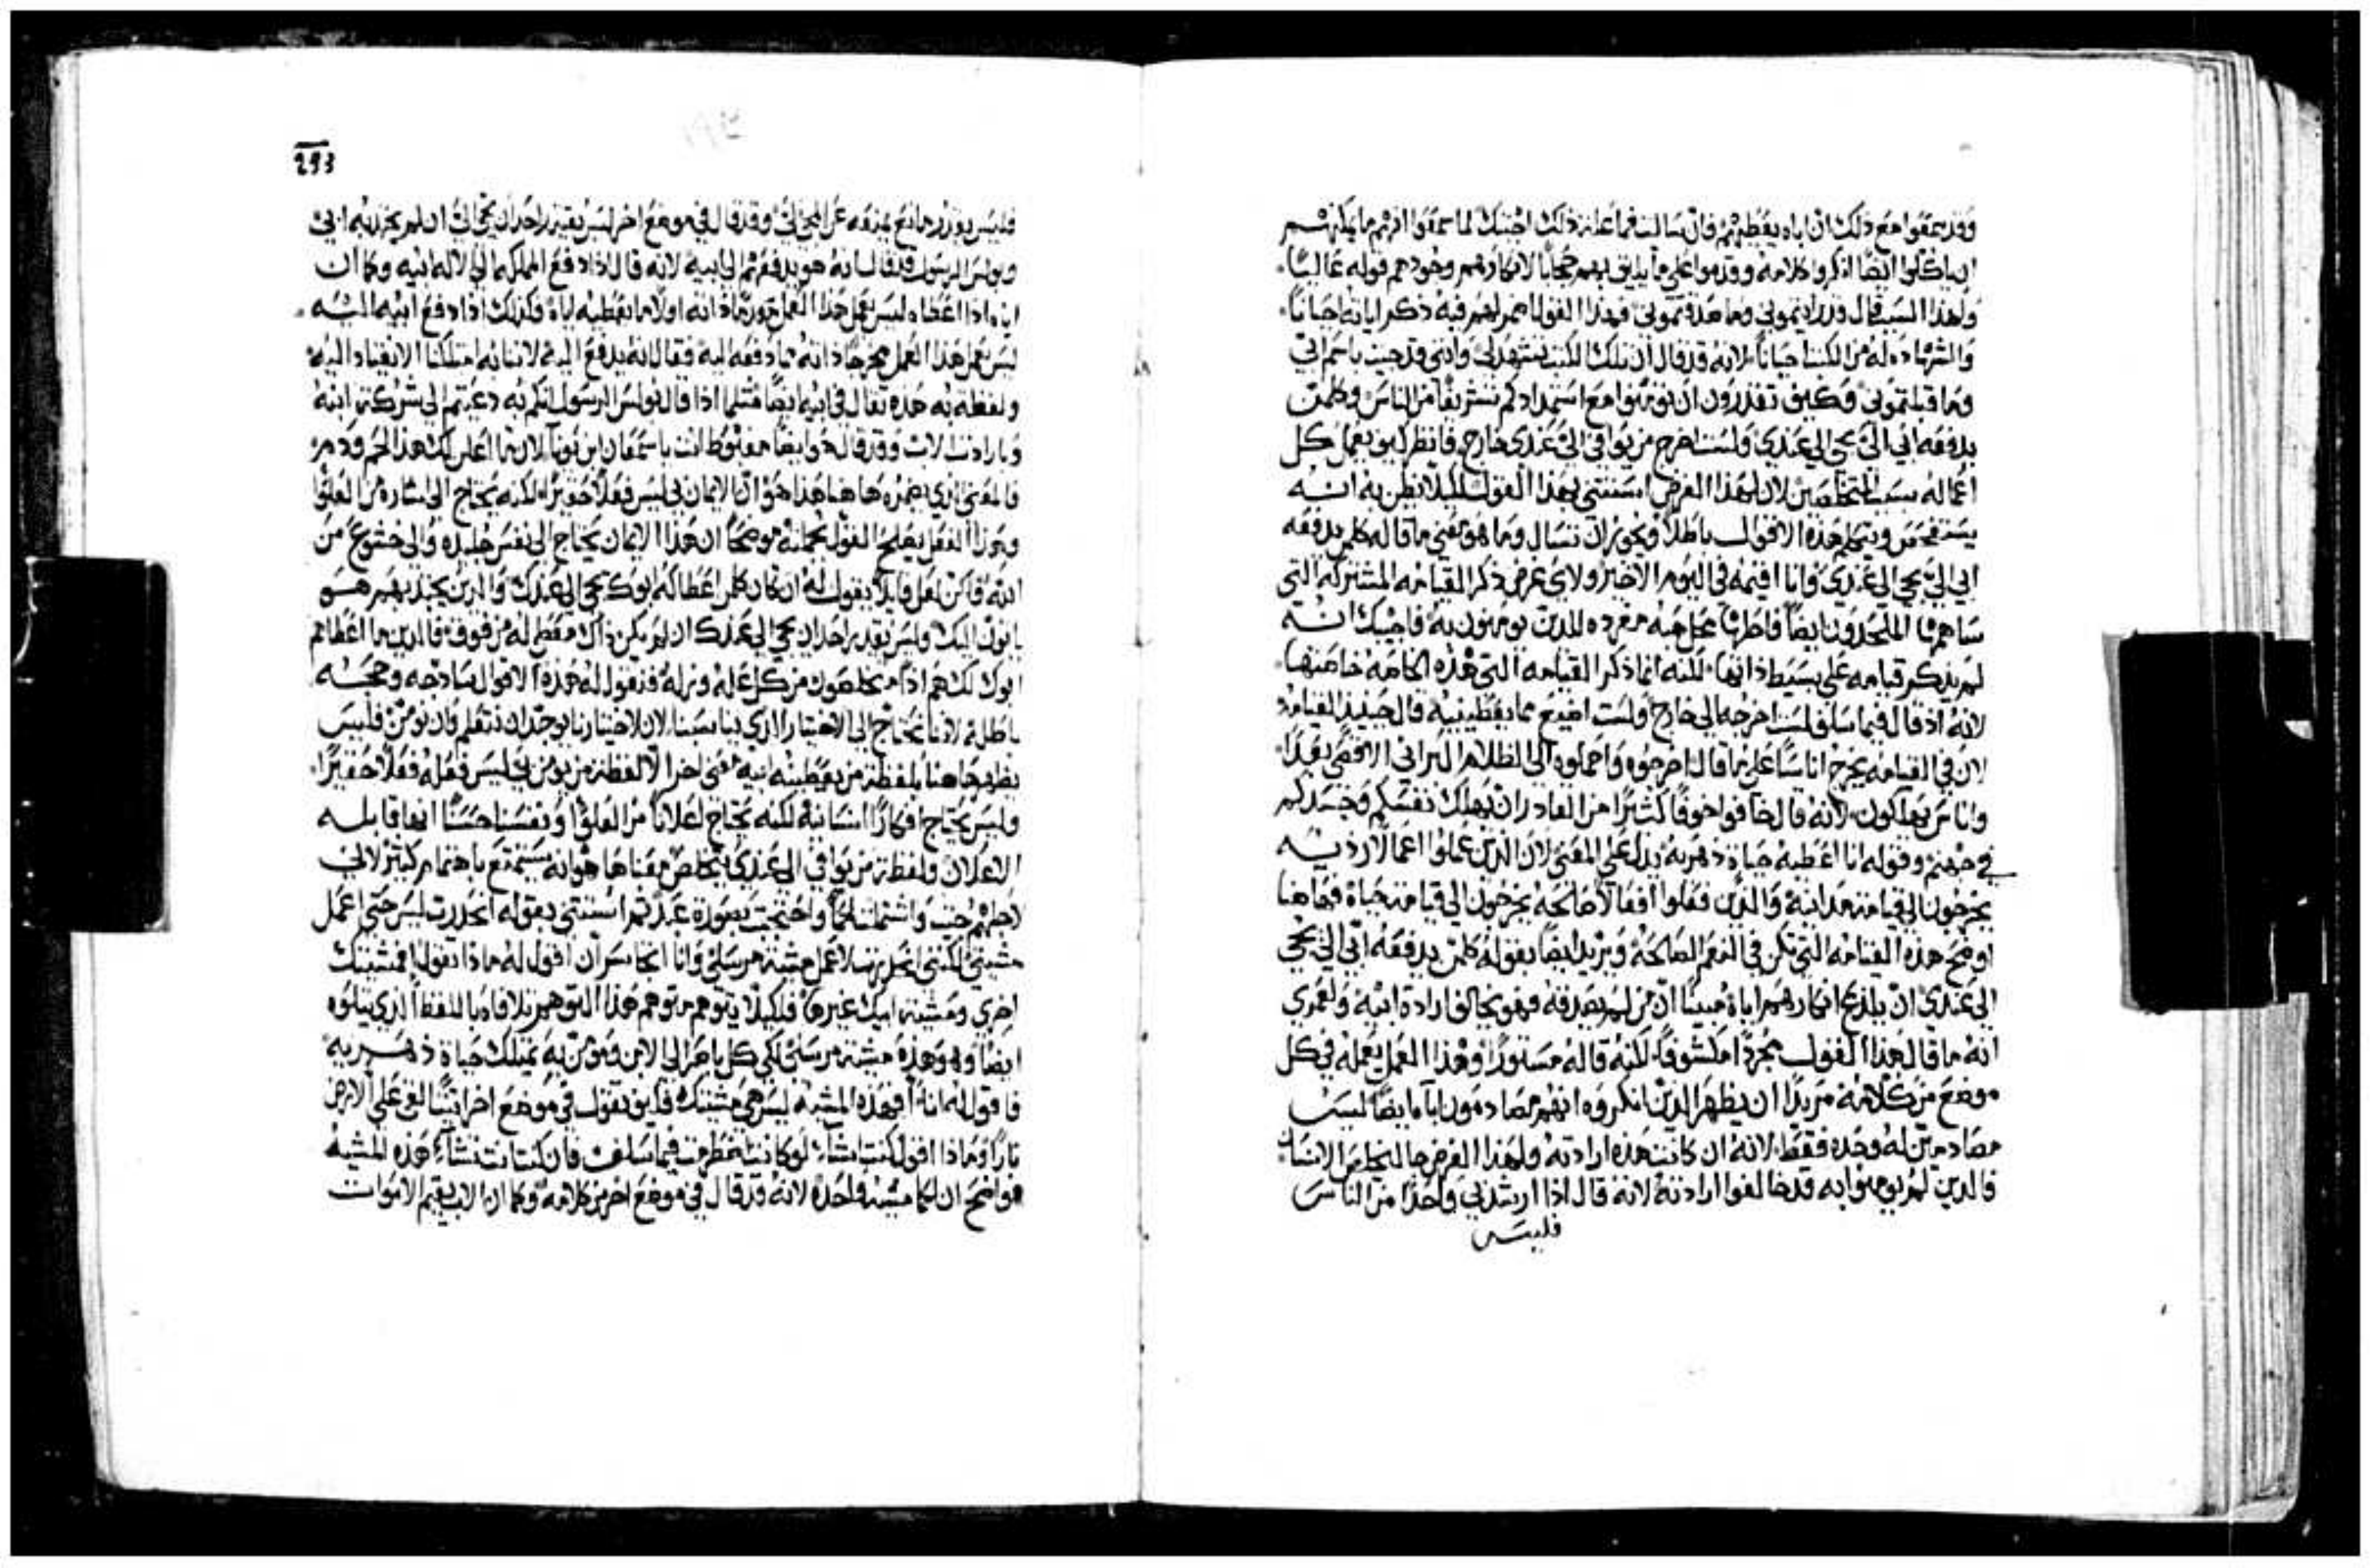 وقد سمعوا مع ذلك ان اباه يعطيهم فان سالت فما غايته ذلك اجبتك لما سمعوا انهم ما يمكنهم
ان ياكلوا ايضًا انكروا كلامه وقدموا على ما يليق بهم حججًا لانكارهم وجودهم قوله غالبًا
ولهذا السبب قال قد رايتموني وما صدقتموني فهذا القول اضمر لهم فيه ذكر اياته احيانًا
والشهاده له من الكتب احيانًا لانه قد قال ان تلك الكتب تشهد لي وانني قد جيت باسم ابي
وما قبلتموني وكيف تقدرون ان تومنوا مع استمدادكم تشريفًا من الناس وكلمن
يدفعه ابي الي يجي الى عندي ولست اخرج من يوافي الى عندي خارج فانظر كيف يعمل كل
اعماله بسبب المتخلصين لان لهذا الغرض استثنى بهذا القول لكيلا يظن به انه
يستفحص ويتكلم هذه الاقوال باطلًا ويجوز ان تسال وما هو معنى ما قاله كلمن يدفعه
ابي الي يجي الى عندي وانا اقيمه في اليوم الاخير ولاي غرض ذكر القيامه المشتركه التي
ساهمها الملحدون ايضًا فاظهرها بمنزلة موهبه مفرده للذين يومنون به فاجيبك انه
لم يذكر قيامه على بسيط ذاتها لكنه انما ذكر القيامه التي هذه الخاصه خاصتها
لانه اذ قال فيما سلف لست اخرجه الى خارج ولست اضيع مما يعطينيه قال حينيذ القيامه
لان في القيامه يخرج اناسًا على ما قال اخرجوه واحملوه الى الظلام البراني الاقصى بعدًا
واناس يهلكون لانه قال خافوا خوفًا كثيرًا من القادر ان يهلك نفسكم وجسدكم
في جهنم وقوله انا اعطيه حياة دهريه يدل على المعنى لان الذين عملوا اعمالًا رديه
يخرجون الى قيامة مداينة والذين فعلوا افعالًا صالحه يخرجون الى قيامة حياة فهاهنا
اوضح هذه القيامه التي تكون في النعم الصالحه ويريد ايضًا بقوله كلمن يدفعه ابي الي يجي
الى عندي ان يلذع انكارهم اياه مبينًا ان من لم يصدقه فهو يخالف ارادة ابيه ولعمري
انه ما قال هذا القول مجردًا مكشوفًا لكنه قاله مستورًا وهذا العمل يعمله في كل
موضع من كلامه مريدًا ان يظهر الذين انكروه انهم مصادمون اباه ايضًا ليس
مصادمين له وحده فقط لانه ان كانت هذه ارادته ولهذا الغرض جا ليخلص الانسان
فالذين لم يومنوا به قد خالفوا ارادته لانه قال اذا ارشد ابي واحدًا من الناس
فليس
293
فليس يوجد مانع يمنعه عن المجي الي وقد قال في موضع اخر ليس يقتدر احد ان يجي الي ان لم يجذبه ابي
وبولس الرسول قد قال انه هو يدفعهم الى ابيه لانه قال اذا دفع المملكه الى الاله ابيه وكما ان
ابوه اذا اعطاه ليس يعمل هذا العمل معوزًا ذاته اولا ما يعطيه اياه فكذلك اذا دفع ابنه اليه
ليس يعمل هذا العمل مخرجًا ذاته مما دفعه اليه فقال انه يدفع اليه لاننا به امتلكنا الانقياد اليه
ولفظة به هذه تقال في ابيه ايضًا مثلما اذا قال بولس الرسول انكم به دعيتم الى شركة ابنه
وبارادة الاب وقد قال هو ايضًا مغبوط انت يا سمعان ابن يونا لان ما اعلن لك هذا لحم ودم
فالمعنى الذي يضمره هاهنا هذا هو ان الايمان بي ليس فعلًا حقيرًا لكنه يحتاج الى اشاره من العلو
وبهذا الفعل يصلح القول بجملته موضحًا ان هذا الايمان يحتاج الى نفس جليده والى خشوع من
الله فاكن لعل قايلًا يقول له ان كان كلمن اعطاكه ابوك يجي الى عندك والذين يجتذبهم هو
ياتون اليك وليس يقتدر احد ان يجي الى عندك ان لم يكن ذاك معطى له من فوق فالذين ما اعطاهم
ابوك لك هم اذًا متخلصون من كل علة وزله فنقول له هذه الاقوال ساذجه وحججه
باطله لاننا نحتاج الى الاختيار الذي يناسبنا لان لاختيارنا يوجد ان نتعلم وان نومن فليس
يظهر هاهنا بلفظة من يعطينيه ابيه معنى اخر الا لفظة من يومن بي ليس فعله فعلًا حقيرًا
وليس يحتاج افكارًا انسانية لكنه يحتاج اعلانًا من العلو ونفسًا حسنًا انها قابله
الاعلان ولفظة من يوافي الى عندي يتخلص معناها هو انه يستمتع باهتمام كثير لاني
لاجلهم جيت واشتملت لحمًا واحتجبت بصورة عبد ثم استثنى بقوله انحدرت ليس حتى اعمل
مشيتي لكنني انحدرت لاعمل مشية مرسلي وانا اتجاسر ان اقول له ماذا تقول افمشيتك
اخرى ومشية ابيك غيرها فلكيلا يتوهم متوهم هذا التوهم تلافاه باللفظ الذي يتلوه
ايضًا وهو وهذه مشية مرسلي لكي كل ناظر الى الابن ومومن به يمتلك حياة دهريه
فاقول له انا افهذه المشيه ليس هي مشيتك فكيف تقول في موضع اخر اتيت القي على الارض
نارًا وماذا اقول كنت اشاء لو كانت اضطرمت فيما سلف فان كنت انت تشاء هذه المشيه
فواضح ان لكما مشية واحدة لانه قد قال في موضع اخر من كلامه وكما ان الاب يقيم الاموات